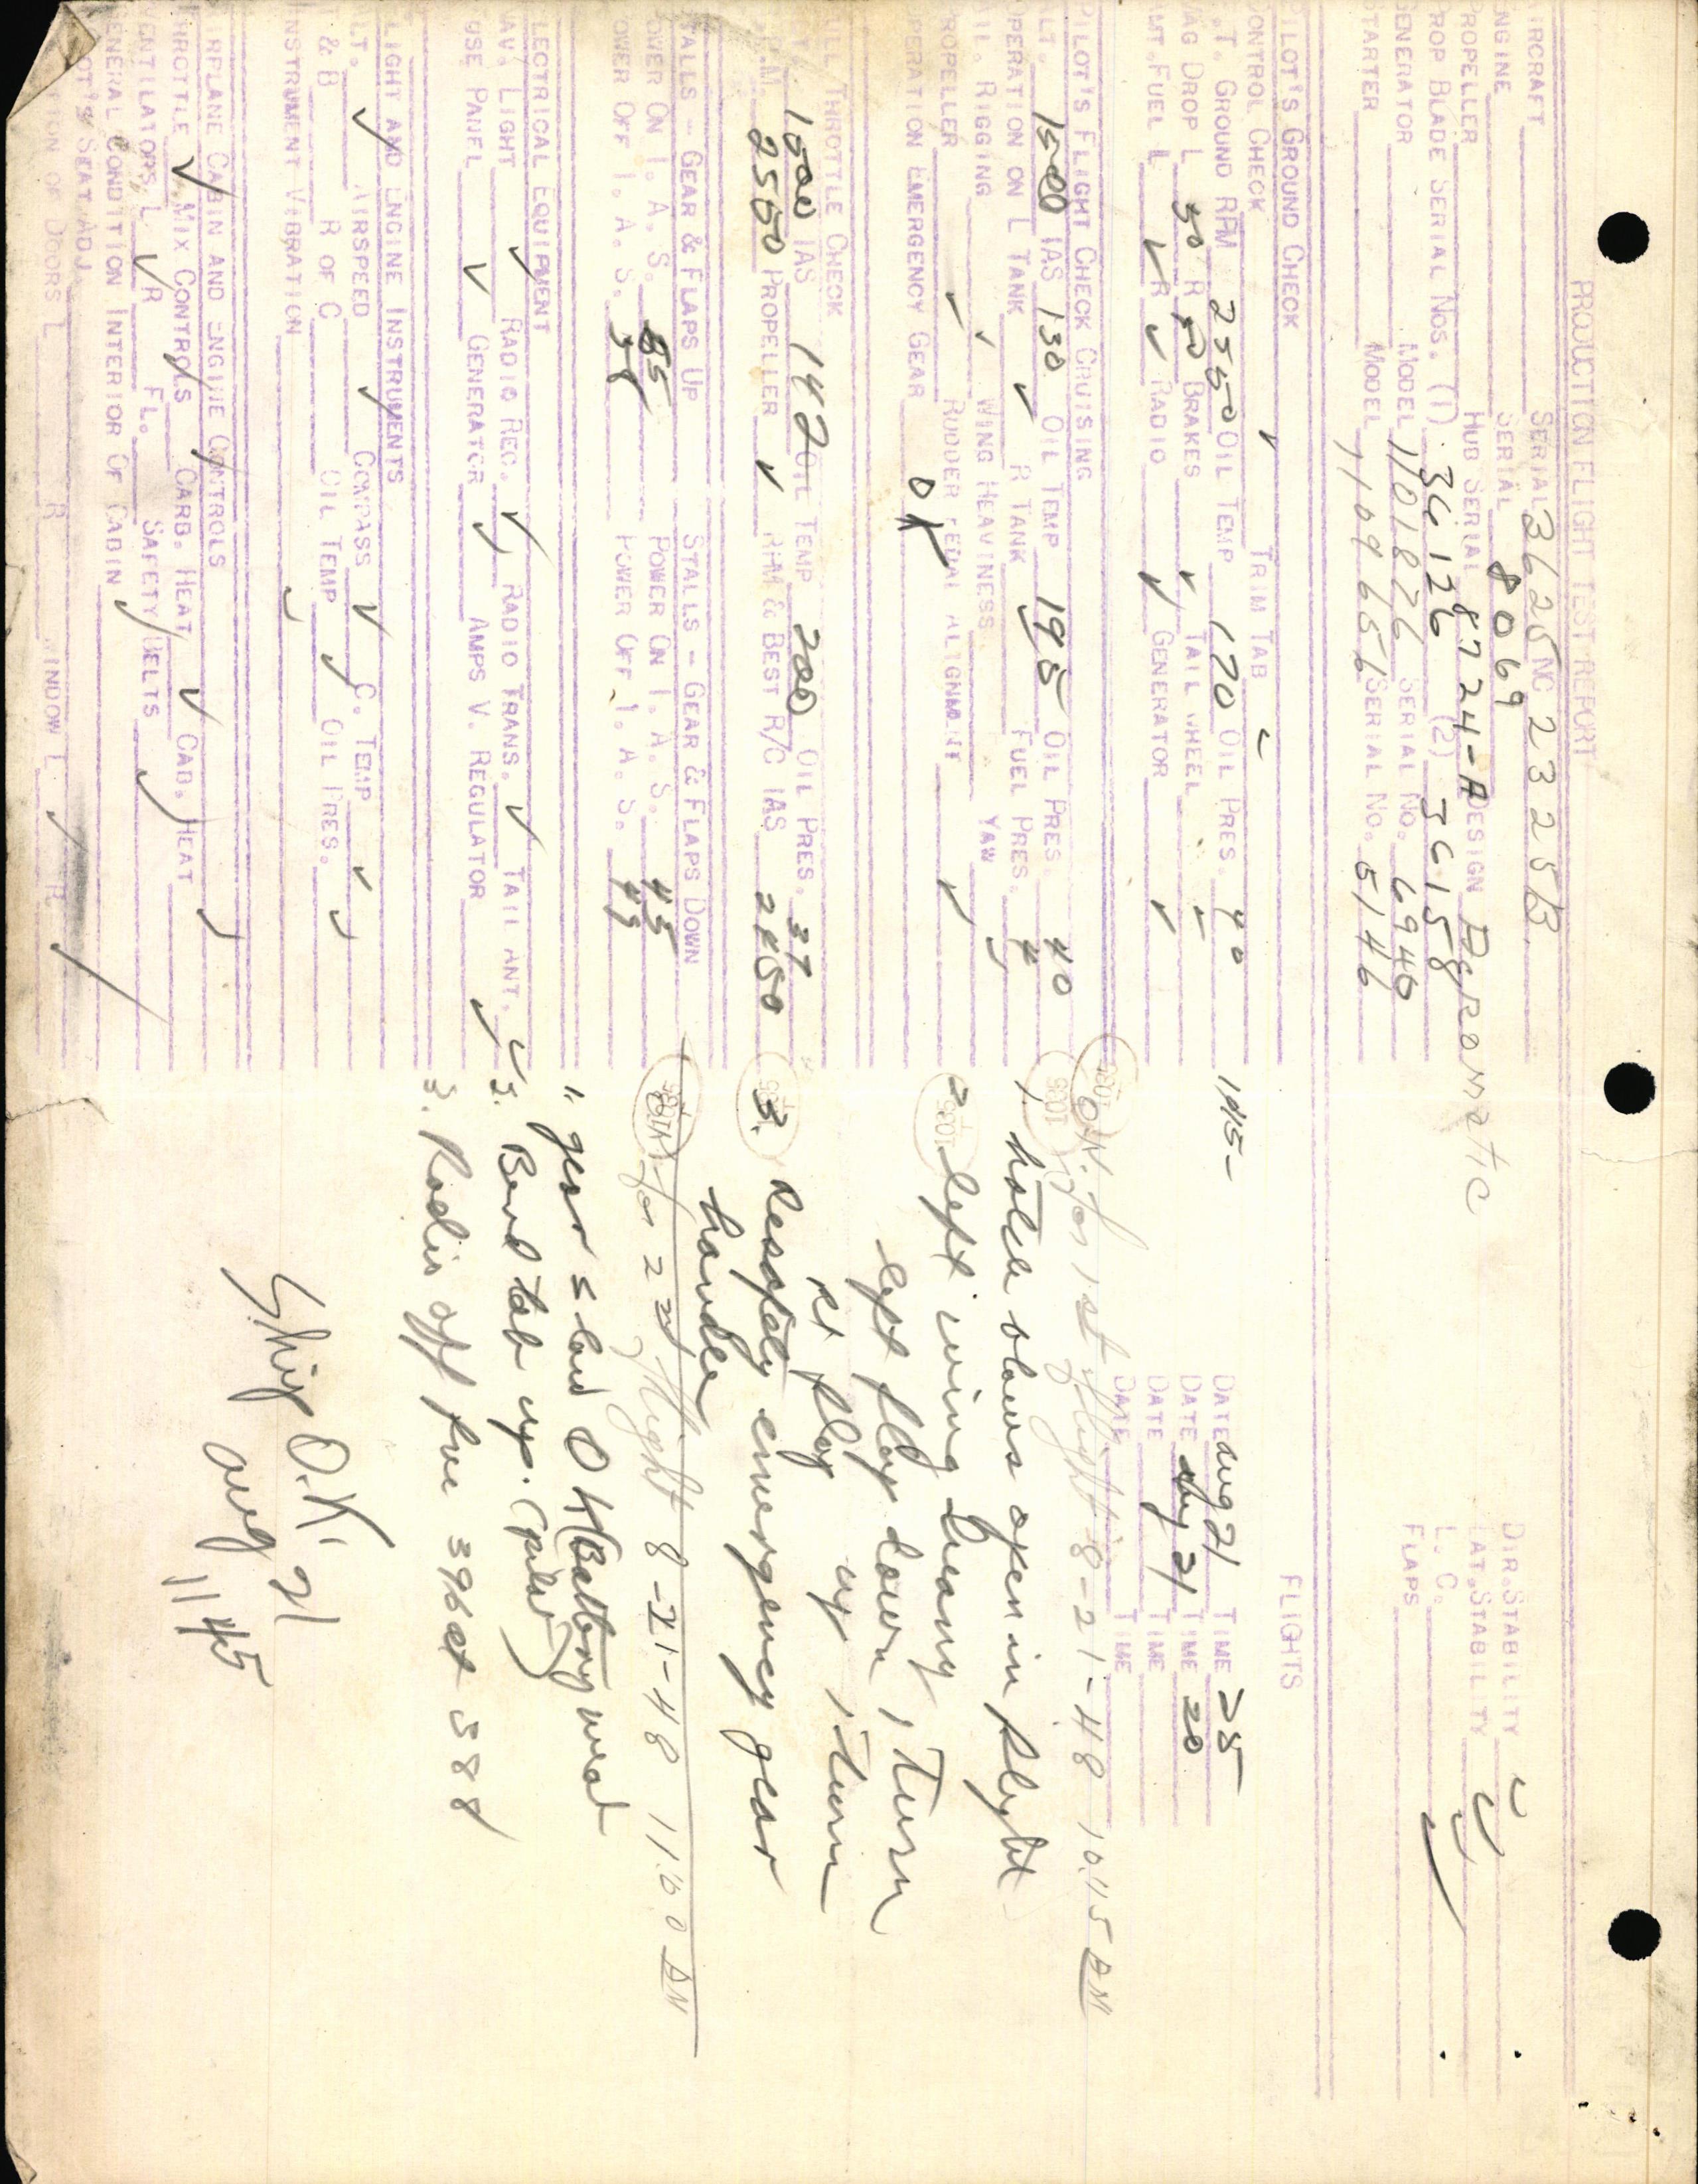 PRODUCTION FLIGHT TEST REPORT
AIRCRAFT SERIAL 3625 NC 2325B
ENGINE SERIAL 8069
PROPELLER HUB SERIAL 8724-A DESIGN Aeromatic
PROP BLADE SERIAL NOS. (1) 36126 (2) 36158
GENERATOR MODEL 1101876 SERIAL NO. 6946
STARTER MODEL 1109656 SERIAL NO. 5146
DIR. STABILITY ✓
LAT. STABILITY ✓
L. C.
FLAPS
PILOT'S GROUND CHECK
CONTROL CHECK ✓ TRIM TAB ✓
S.T. GROUND RPM 2550 OIL TEMP 170 OIL PRES. 40
MAG DROP L 50 R 50 BRAKES ✓ TAIL WHEEL ✓
AMT. FUEL L ✓ R ✓ RADIO ✓ GENERATOR ✓
1415-
FLIGHTS
DATE Aug 21 TIME 35
DATE Aug 21 TIME 20
DATE TIME
DATE TIME
PILOT'S FLIGHT CHECK CRUISING
ALT. 1500 IAS 130 OIL TEMP 195 OIL PRES. 40
OPERATION ON L TANK ✓ R TANK ✓ FUEL PRES. 4
TAIL. RIGGING ✓ WING HEAVINESS YAW ✓
PROPELLER ✓ RUDDER PEDAL ALIGNMENT ✓
OPERATION EMERGENCY GEAR OK
FULL THROTTLE CHECK
ALT. 1500 IAS 142 OIL TEMP 200 OIL PRES. 37
R.P.M. 2550 PROPELLER ✓ RPM & BEST R/C IAS 2450
STALLS - GEAR & FLAPS UP STALLS - GEAR & FLAPS DOWN
POWER ON I. A. S. 55 POWER ON I. A. S. 45
POWER OFF I. A. S. 58 POWER OFF I. A. S. 49
ELECTRICAL EQUIPMENT
NAV. LIGHT ✓ RADIO REC. ✓ RADIO TRANS. ✓ TAIL ANT. ✓
FUSE PANEL ✓ GENERATOR ✓ AMPS V. REGULATOR ✓
FLIGHT AND ENGINE INSTRUMENTS
ALT. ✓ AIRSPEED ✓ COMPASS ✓ C. TEMP ✓
T & B R OF C OIL TEMP ✓ OIL PRES. ✓
INSTRUMENT VIBRATION ✓
AIRPLANE CABIN AND ENGINE CONTROLS
THROTTLE ✓ MIX CONTROLS ✓ CARB. HEAT ✓ CAB. HEAT ✓
VENTILATORS L ✓ R FL. SAFETY BELTS ✓
GENERAL CONDITION INTERIOR OF CABIN ✓
PILOT'S SEAT ADJ.
OPERATION OF DOORS L R WINDOW L ✓ R ✓
O.K. for 1st flight 8-21-48 10:45 AM
1. hatch blows open in flight
2. left wing heavy
left flap down 1 turn
Rt flap up 1 turn
3. Resafety emergency gear
handle
O.K. for 2nd flight 8-21-48 11:00 AM
1. gear s land OK (Battery weak
2. Bend tab up. (pilot)
3. Radio off for 396 at 388
Ship O.K.
Aug 21
1145